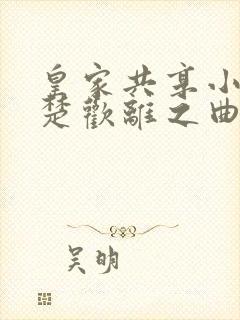 皇家共享小
楚歡離之曲
吴明